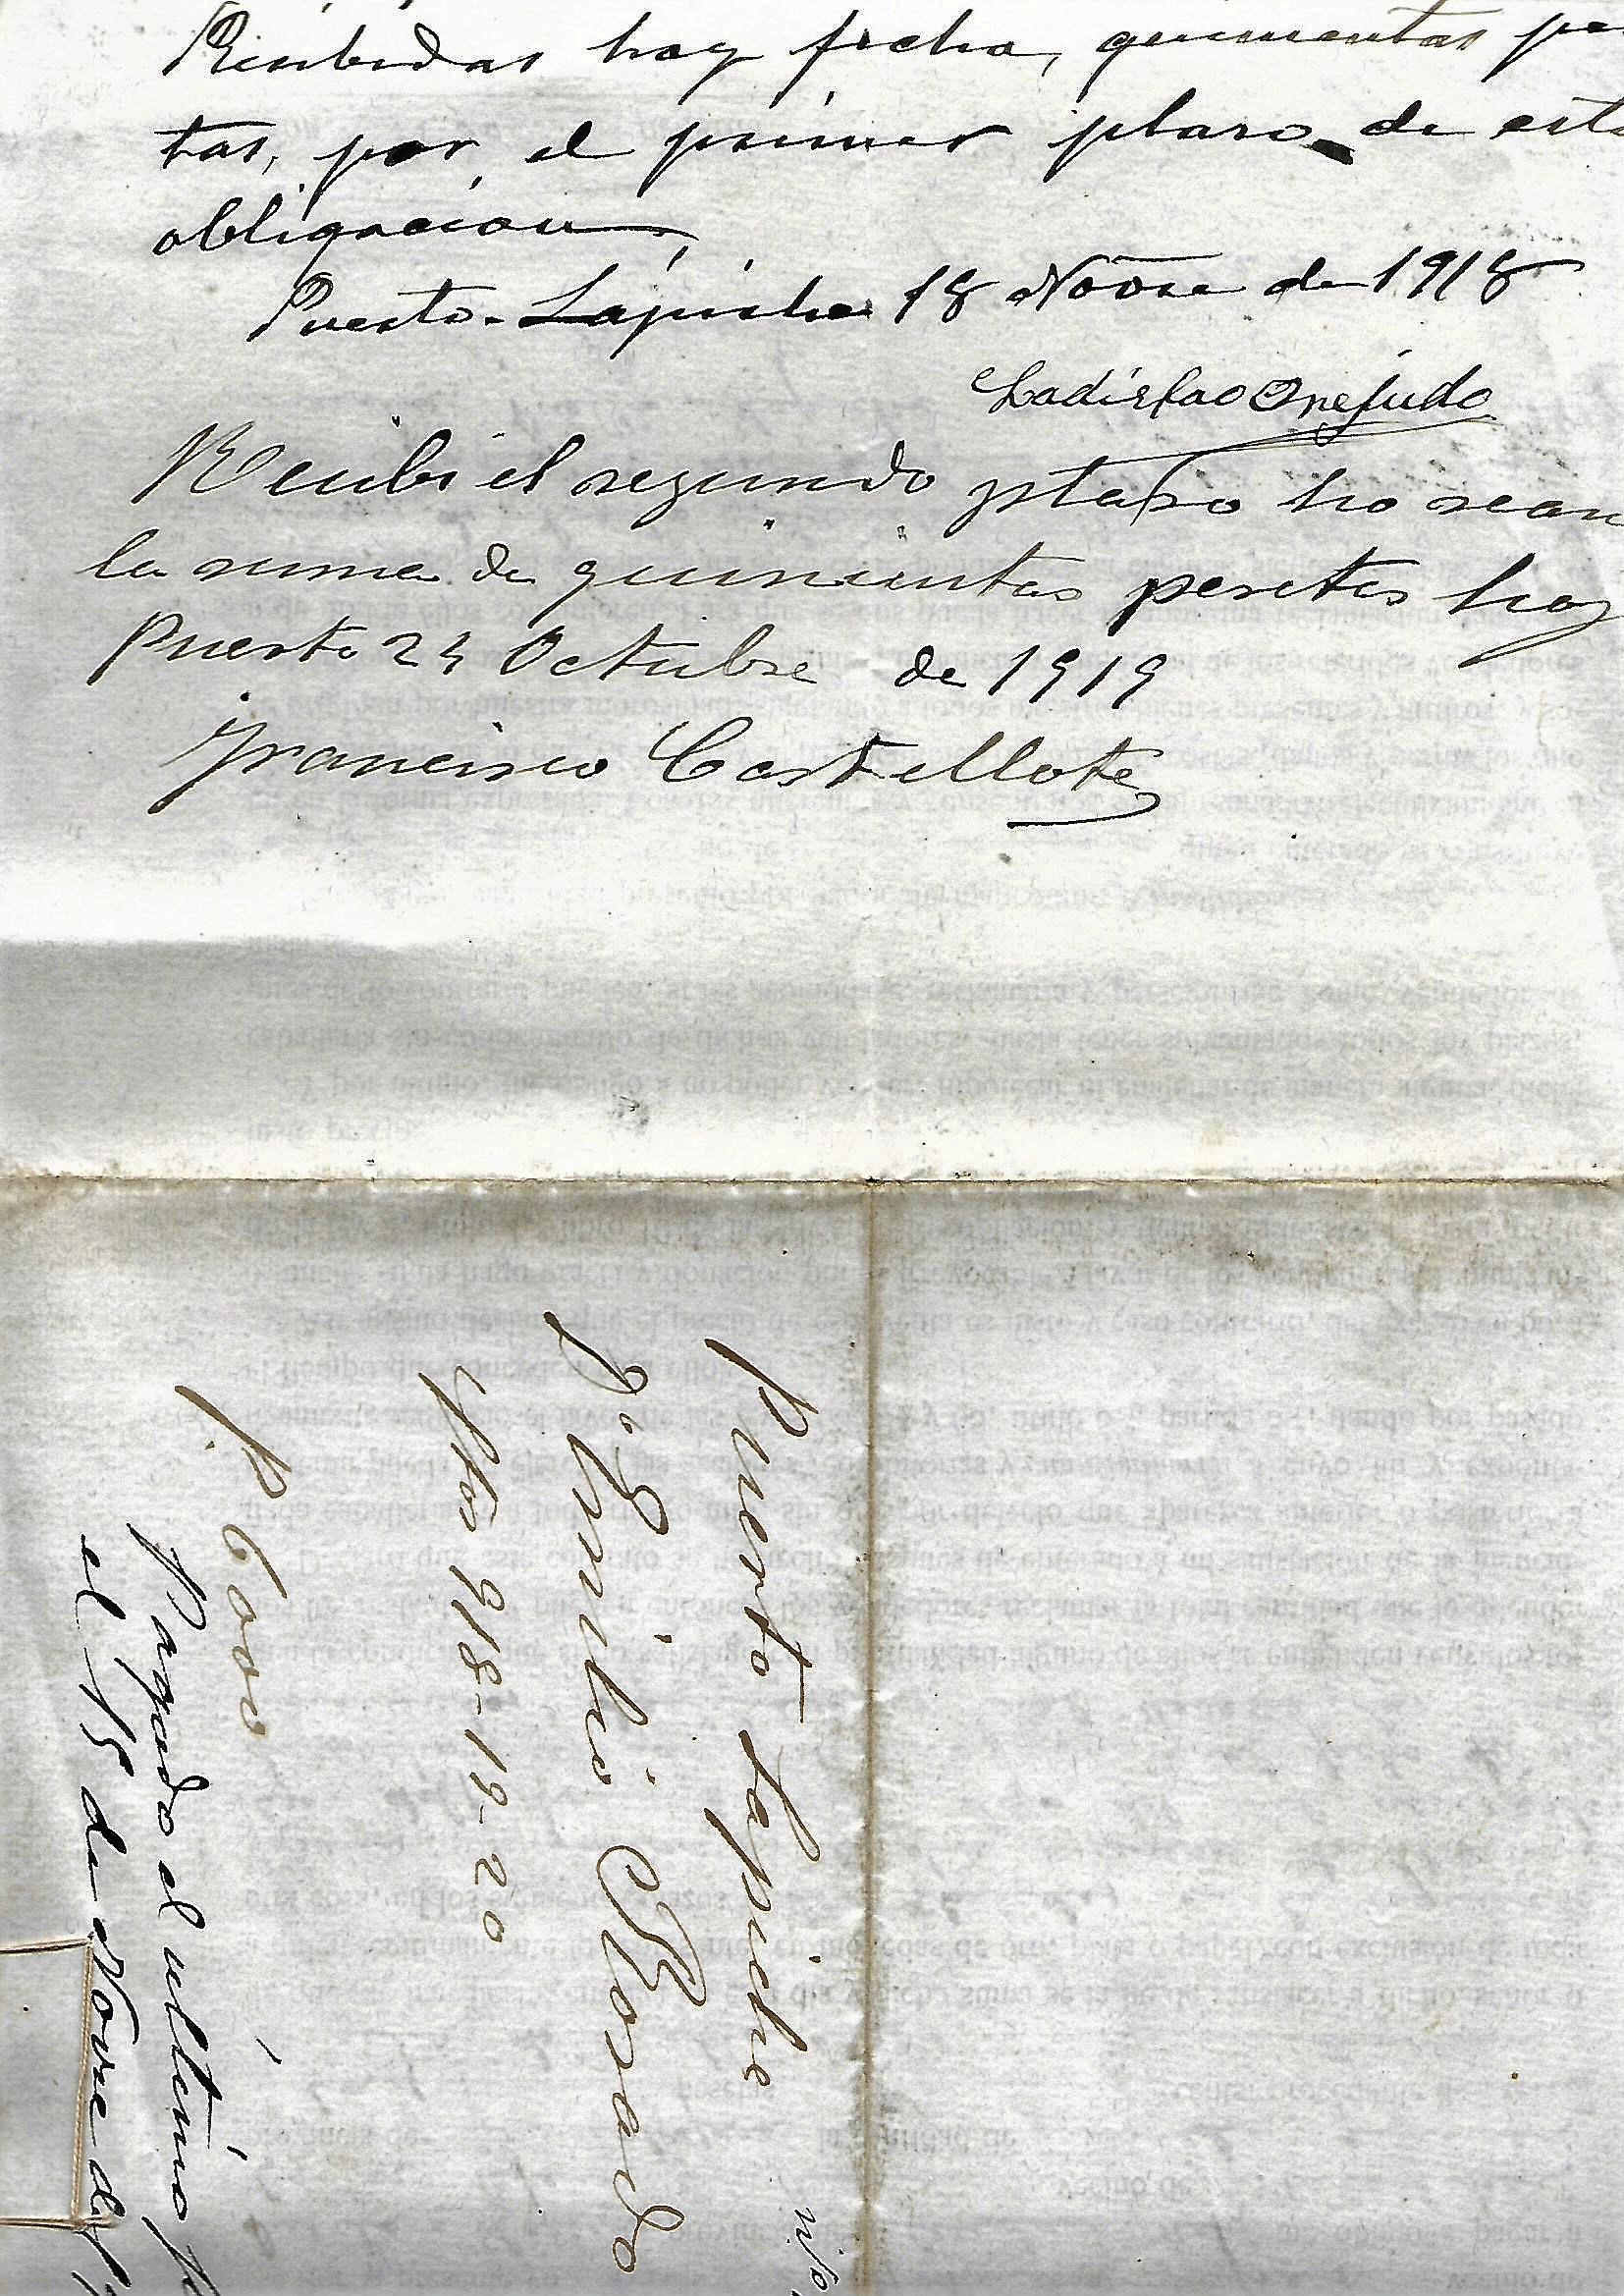 Recibidas hoy fecha, quinientas pe
tas, por el primer plaso de esta
obligacion,
Puerto-Lapiche 18 Nobre de 1918
Ladislao Orejudo
Recibi el segundo plaso ho sean
la suma de quinientas pesetas hoy
Puerto 24 Octubre de 1919
Francisco Castellote
Puerto Lapiche
Dn Emilio Rosado
Vtos 918-19-20
p. 6000
Pagado el ultimo p
el 15 de Novre de